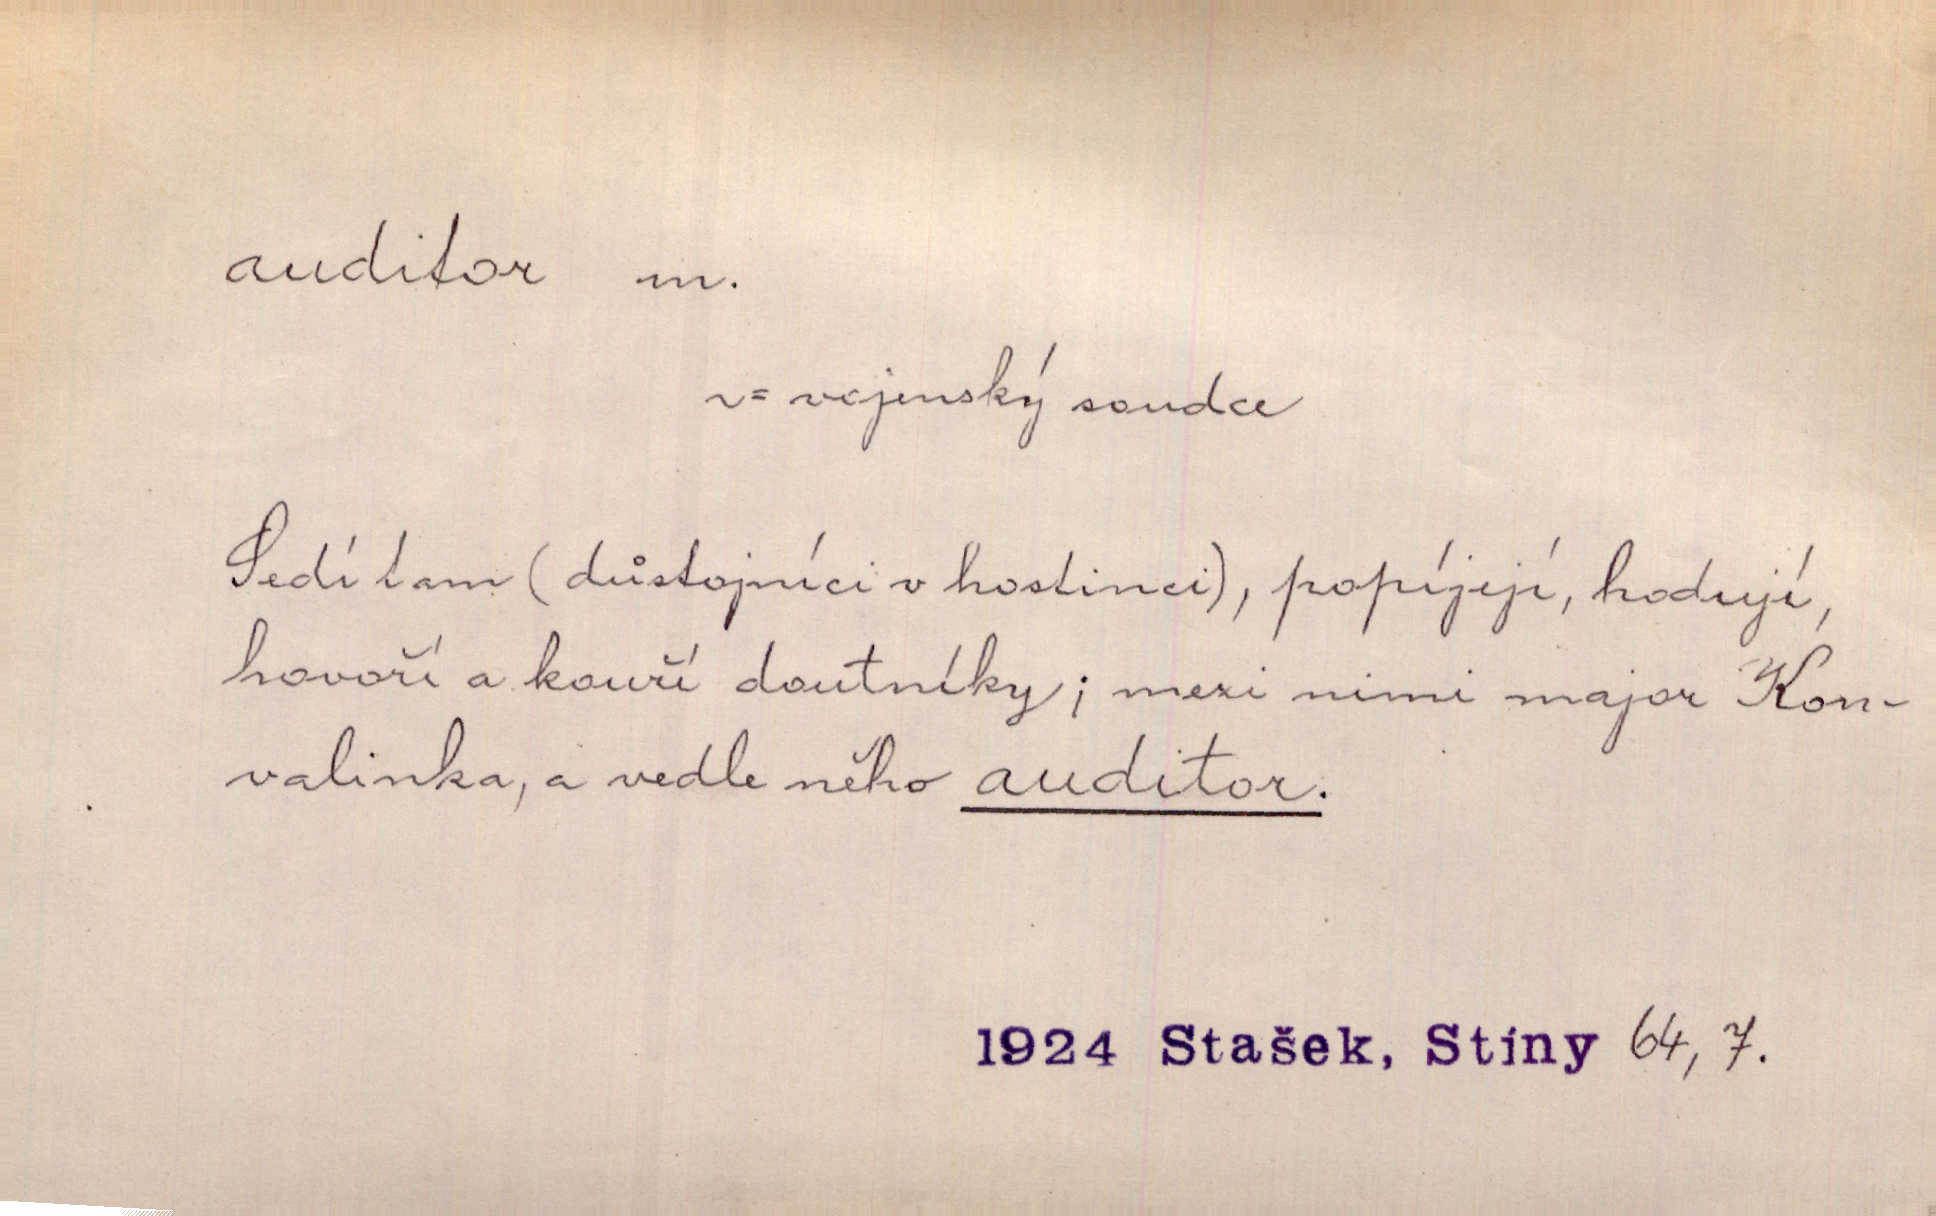 auditor m.
v= vojenský soudce
Sedí tam (důstojníci v hostinci), popíjejí, hodují,
hovoří a kouří doutníky; mezi nimi major Kon-
valinka, a vedle něho auditor.
1924 Stašek, Stíny 64, 7.